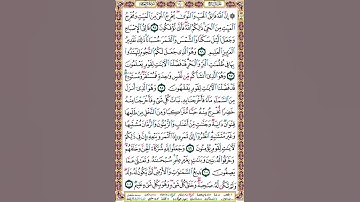 إِنَّ ٱللَّهَ فَالِقُ ٱلْحَبِّ وَٱلنَّوَىٰ يُخْرِجُ ٱلْحَىَّ مِنَ ٱلْمَيِّتِ وَمُخْرِجُ
ٱلْمَيِّتِ مِنَ ٱلْحَىِّ ذَٰلِكُمُ ٱللَّهُ فَأَنَّىٰ تُؤْفَكُونَ فَالِقُ ٱلْإِصْبَاحِ
وَجَعَلَ ٱلَّيْلَ سَكَنًا وَٱلشَّمْسَ وَٱلْقَمَرَ حُسْبَانًا ذَٰلِكَ تَقْدِيرُ
ٱلْعَزِيزِ ٱلْعَلِيمِ وَهُوَ ٱلَّذِى جَعَلَ لَكُمُ ٱلنُّجُومَ لِتَهْتَدُوا۟
بِهَا فِى ظُلُمَٰتِ ٱلْبَرِّ وَٱلْبَحْرِ قَدْ فَصَّلْنَا ٱلْءَايَٰتِ لِقَوْمٍ يَعْلَمُونَ
وَهُوَ ٱلَّذِىٓ أَنشَأَكُم مِّن نَّفْسٍ وَٰحِدَةٍ فَمُسْتَقَرٌّ وَمُسْتَوْدَعٌ
قَدْ فَصَّلْنَا ٱلْءَايَٰتِ لِقَوْمٍ يَفْقَهُونَ وَهُوَ ٱلَّذِىٓ أَنزَلَ
مِنَ ٱلسَّمَآءِ مَآءً فَأَخْرَجْنَا بِهِۦ نَبَاتَ كُلِّ شَىْءٍ فَأَخْرَجْنَا مِنْهُ
خَضِرًا نُّخْرِجُ مِنْهُ حَبًّا مُّتَرَاكِبًا وَمِنَ ٱلنَّخْلِ مِن طَلْعِهَا
قِنْوَانٌ دَانِيَةٌ وَجَنَّٰتٍ مِّنْ أَعْنَابٍ وَٱلزَّيْتُونَ وَٱلرُّمَّانَ مُشْتَبِهًا
وَغَيْرَ مُتَشَٰبِهٍ ٱنظُرُوٓا۟ إِلَىٰ ثَمَرِهِۦٓ إِذَآ أَثْمَرَ وَيَنْعِهِۦٓ إِنَّ فِى
ذَٰلِكُمْ لَءَايَٰتٍ لِّقَوْمٍ يُؤْمِنُونَ وَجَعَلُوا۟ لِلَّهِ شُرَكَآءَ ٱلْجِنَّ وَخَلَقَهُمْ
وَخَرَقُوا۟ لَهُۥ بَنِينَ وَبَنَٰتٍۭ بِغَيْرِ عِلْمٍ سُبْحَٰنَهُۥ وَتَعَٰلَىٰ عَمَّا
يَصِفُونَ بَدِيعُ ٱلسَّمَٰوَٰتِ وَٱلْأَرْضِ أَنَّىٰ يَكُونُ لَهُۥ وَلَدٌ
وَلَمْ تَكُن لَّهُۥ صَٰحِبَةٌ وَخَلَقَ كُلَّ شَىْءٍ وَهُوَ بِكُلِّ شَىْءٍ عَلِيمٌ